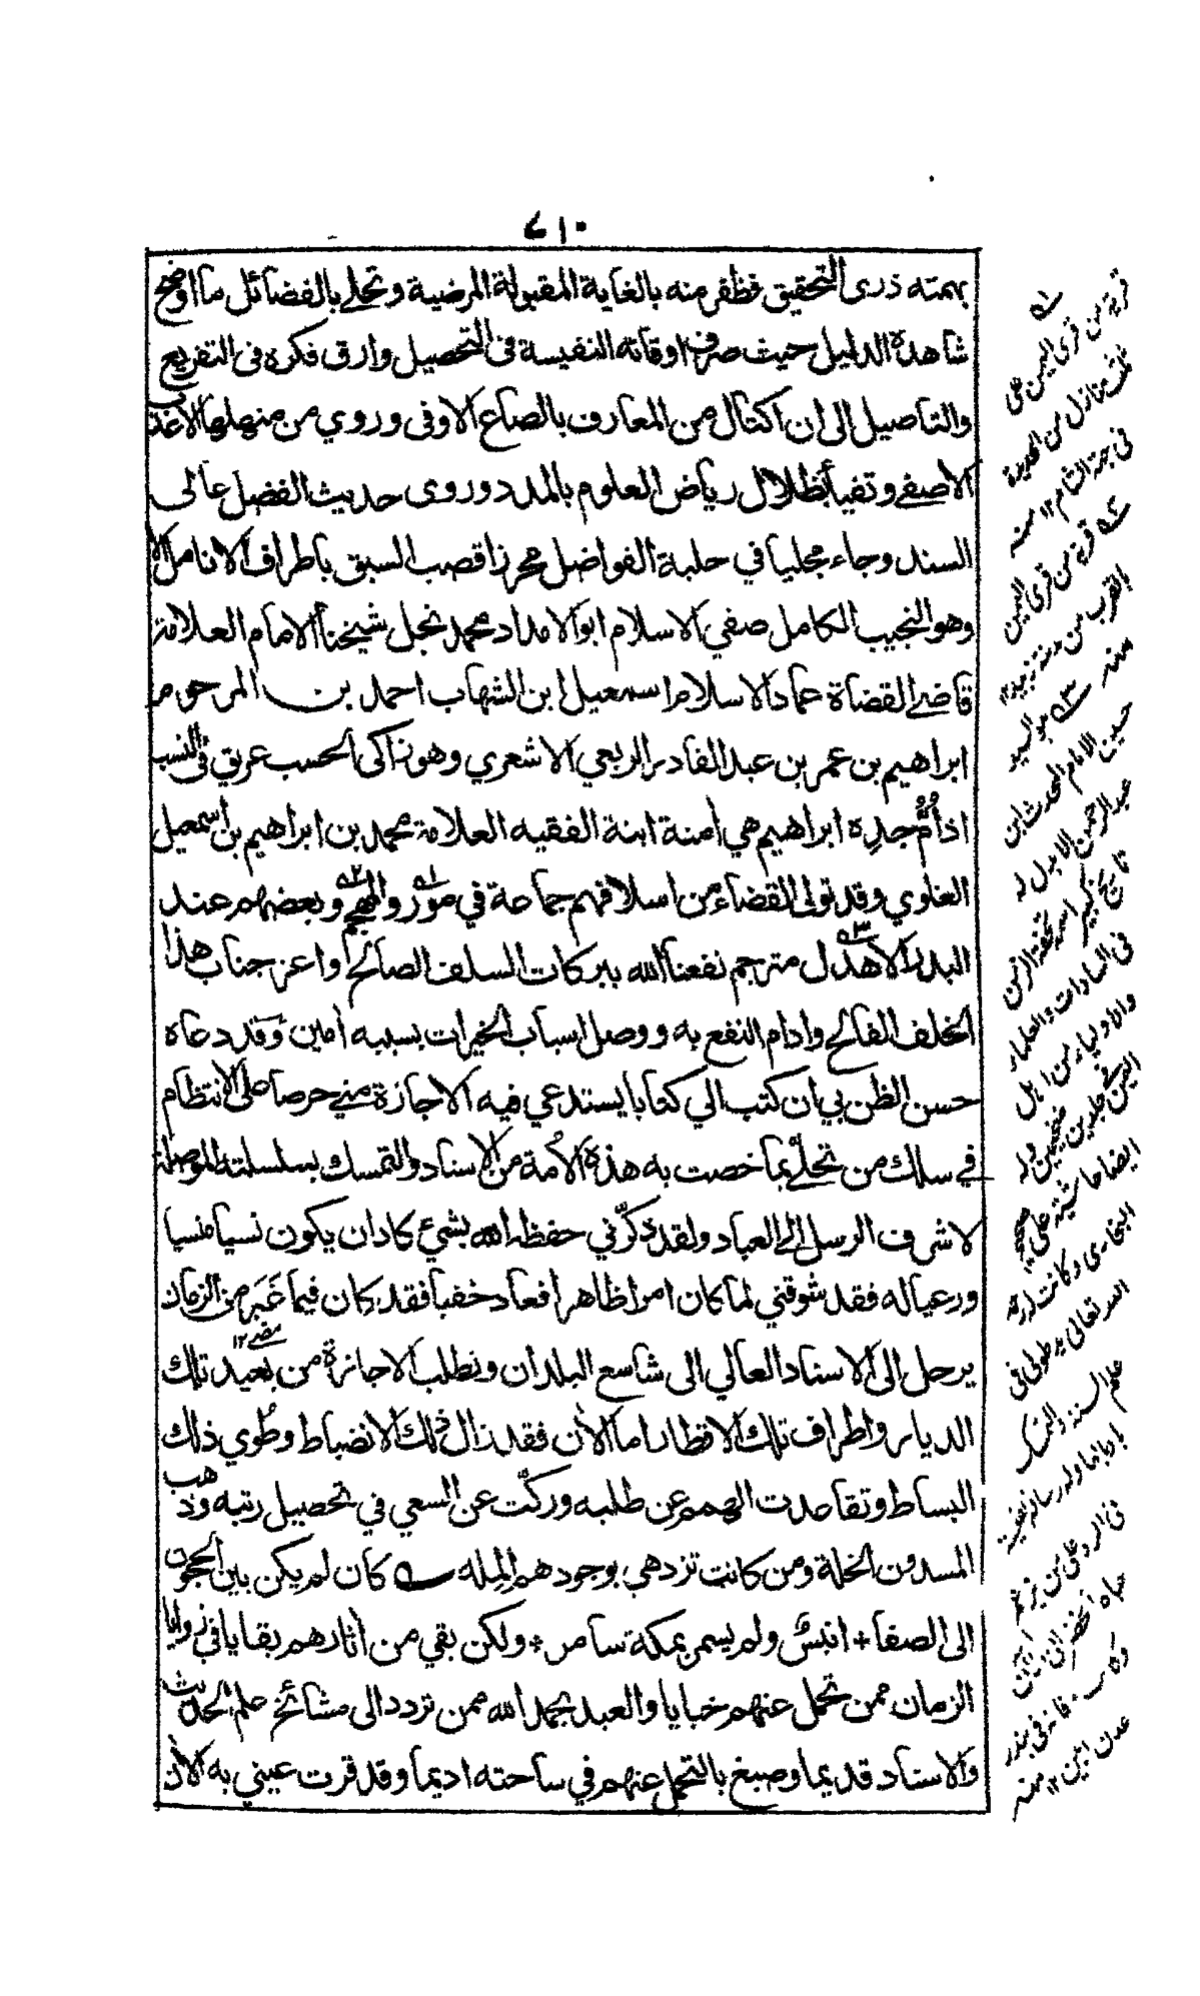 ٤١٠
بهمته ذرى التحقيق فظفر منه بالغاية المقبولة المرضية وتحلى بالفضائل ما اوضح
شاهده الدليل حيث صرف اوقاته النفيسة فى التحصيل وارق فكره فى التفريع
والتاصيل الى ان اكتال من المعارف بالصاع الاوفى وروي من منهلها الاعذب
الاصفى وتفيأ بظلال رياض العلوم بالمدد وروى حديث الفضل عالى
السند وجاء مجليا في حلبة الفواضل محرزا قصب السبق باطراف الانامل الا
وهو النجيب الكامل صفي الاسلام ابو الامداد محمد نجل شيخنا الامام العلامة
قاضي القضاة عماد الاسلام اسمعيل ابن الشهاب احمد بن المرحوم
ابراهيم بن عمر بن عبد القادر الربعي الاشعري وهو زاكى الحسب عريق فى النسب
اذ أم جده ابراهيم هي آمنة ابنة الفقيه العلامة محمد بن ابراهيم بن اسمعيل
العلوي وقد تولى القضاء من اسلافهم جماعة في مور والمهجم وبعضهم عند
البدر الاهدل مترجم نفعنا الله ببركات السلف الصالح واعز جناب هذا
الخلف الفالح وادام النفع به ووصل اسباب الخيرات بسببه أمين وقد دعاه
حسن الظن بي ان كتب الي كتابا يستدعي فيه الاجازة مني حرصا على الانتظام
في سلك من تحلى بما خصت به هذه الأمة من الاسناد والتمسك بسلسلته الموصلة
لاشرف الرسل الى العباد ولقد ذكرني حفظه الله بشيء كاد ان يكون نسيا منسيا
ورعيا له فقد شوقني لما كان امرا ظاهرا فعاد خفيا فقد كان فيما غبر من الزمان
مضى ١٢
يرحل الى الاسناد العالي الى شاسع البلدان ونطلب الاجازة من بعيد تلك
الديار واطراف تلك الاقطار اما الأن فقد زال ذلك الانضباط وطوي ذلك
البساط وتقاعدت الهمم عن طلبه وركّت عن السعي في تحصيل رتبه وذهب
المسدون الخلة ومن كانت تزدهي بوجودهم الملة كان لم يكن بين الحجون
الى الصفا * انيس ولم يسمر بمكة سامر * ولكن بقي من أثارهم بقايا في زوايا
الزمان ممن تحمل عنهم خبايا والعبد بحمد الله ممن تردد الى مشائخ علم الحديث
والاسناد قديما وصبغ بالتحمل عنهم في ساحته اديما وقد قرت عيني به الأن
ـ١
قرية من قرى اليمن على
ثلث منازل من الحديدة
فى جهة الشام ١٢ منه
ـ٢ قرية من قرى اليمن
القرب من
منه ـ٣ هو السيد
حسين الامام المحدث ابن
عبد الرحمن الاهدل له
تاريخ كبير اسمه تحفة الزمن
فى السادات والعلماء
والاولياء من اهل
اليمن فى مجلدين ضخيمين وله
ايضا حاشية على صحيح
البخارى وكانت
الله تعالى يد طولى فى
علم السنة
وله رسالة نفيسة
فى الرد على من يزعم
حياة الخضر الى الان
فى بندر
عدن امين ١٢ منه